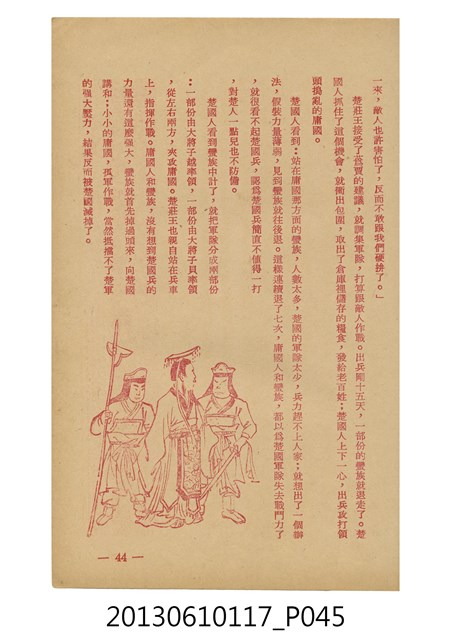 一來，敵人也許害怕了，反而不敢跟我們硬拚了。」
楚莊王接受了蔿賈的建議，就調集軍隊，打算跟敵人作戰。出兵剛十五天，一部份的蠻族就退走了。楚
國人抓住了這個機會，就衝出包圍，取出了倉庫裡儲存的糧食，發給老百姓；楚國人上下一心，出兵攻打領
頭搗亂的庸國。
楚國人看到：站在庸國那方面的蠻族，人數太多，楚國的軍隊太少，兵力趕不上人家；就想出了一個辦
法，假裝力量薄弱，見到蠻族就往後退。這樣連續退了七次，庸國人和蠻族，都以為楚國軍隊失去戰鬥力了
，就很看不起楚國兵，認為楚國兵簡直不值得一打
，對楚人一點兒也不防備。
楚國人看到蠻族中計了，就把軍隊分成兩部份
：一部份由大將子越率領，一部份由大將子貝率領
，從左右兩方，夾攻庸國。楚莊王也親自站在兵車
上，指揮作戰。庸國人和蠻族，沒有想到楚國兵的
力量還有這麼強大，蠻族就首先掉過頭來，向楚國
講和；小小的庸國，孤軍作戰，當然抵擋不了楚軍
的強大壓力，結果反而被楚國滅掉了。
— 44 —
20130610117_P045